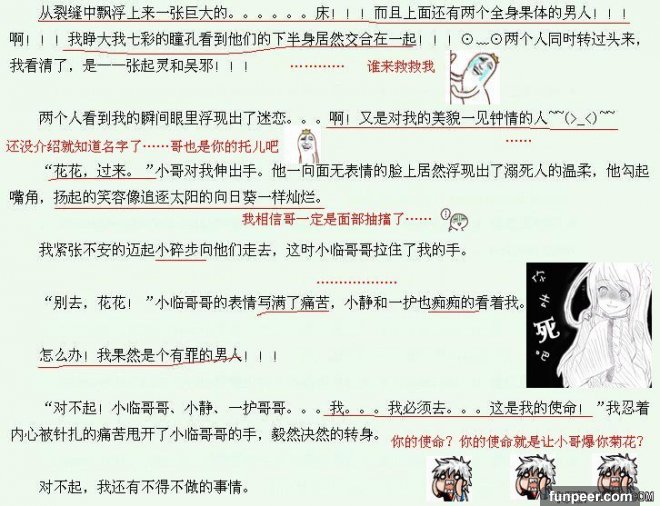 从裂缝中飘浮上来一张巨大的。。。。。。床！！！而且上面还有两个全身果体的男人！！！
啊！！！我睁大我七彩的瞳孔看到他们的下半身居然交合在一起！！！⊙﹏⊙两个人同时转过头来，
我看清了，是——张起灵和吴邪！！！
…………
谁来救救我
两个人看到我的瞬间眼里浮现出了迷恋。。。啊！又是对我的美貌一见钟情的人~~(>_<)~~
还没介绍就知道名字了……哥也是你的托儿吧
……
“花花，过来。”小哥对我伸出手。他一向面无表情的脸上居然浮现出了溺死人的温柔，他勾起
嘴角，扬起的笑容像追逐太阳的向日葵一样灿烂。
我相信哥一定是面部抽搐了……
我紧张不安的迈起小碎步向他们走去，这时小临哥哥拉住了我的手。
………………
“别去，花花！”小临哥哥的表情写满了痛苦，小静和一护也痴痴的看着我。
死
怎么办！我果然是个有罪的男人！！！
“对不起！小临哥哥、小静、一护哥哥。。。我。。。我必须去。。。这是我的使命！”我忍着
内心被针扎的痛苦甩开了小临哥哥的手，毅然决然的转身。
你的使命？你的使命就是让小哥爆你菊花？
对不起，我还有不得不做的事情。
funpeer.com